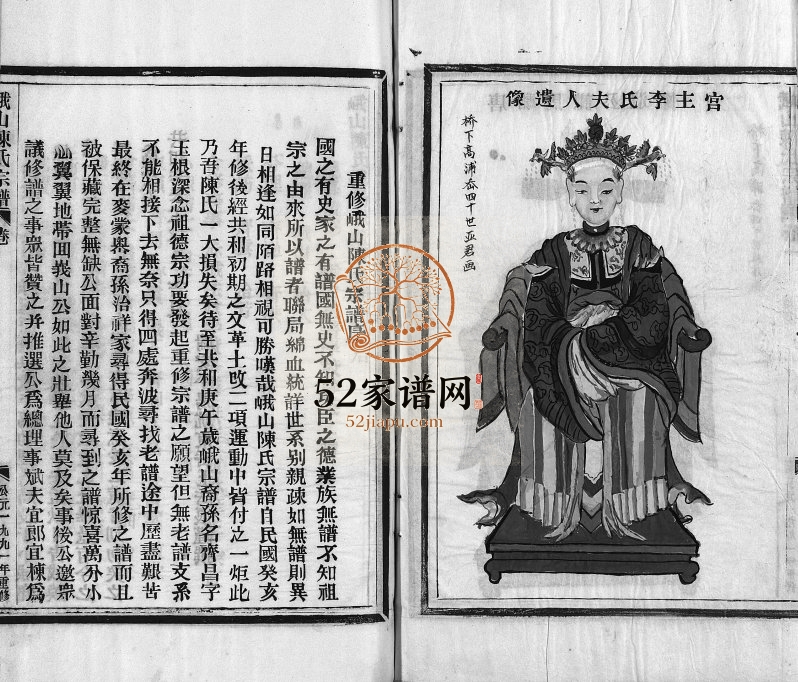 官主李氏夫人遺像
橋下高浦岙四十世亚君画
重修峨山陳氏宗譜
國之有史家之有譜國無史不知臣之德業族無譜不知祖
宗之由來所以譜者聯局綿血統詳世系别親疎如無譜則異
日相逢如同陌路相視可勝嘆哉峨山陳氏宗譜自民國癸亥
年修後經共和初期之文革土改二項運動中皆付之一炬此
乃吾陳氏一大損失矣待至共和庚午歲峨山裔孫名齊昌字
玉根深念祖德宗功要發起重修宗譜之願望但無老譜支系
不能相接下去無奈只得四處奔波尋找老譜途中歷盡艱苦
最終在麥蒙嶴裔孫治祥家尋得民國癸亥年所修之譜而且
被保藏完整無缺公面對辛勤幾月而尋到之譜惊喜萬分小
心翼翼地帶回峩山公如此之壯舉他人莫及矣事後公邀衆
議修譜之事衆皆贊之并推選公爲總理事斌夫宜郎宜棟爲
峨山陳氏宗譜
卷
公元一九九一年重修
52家谱网
52jiapu.com